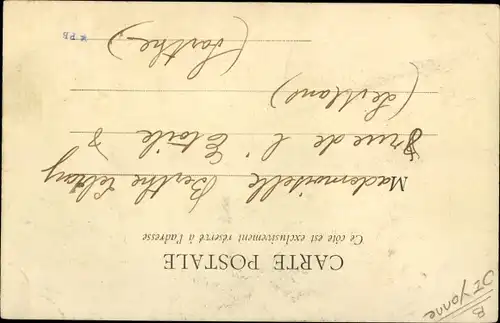 CARTE POSTALE
Ce côté est exclusivement réservé à l'adresse
Mademoiselle Berthe
8 rue de l'Etoile 8
(Sarthe)
B
St Yonne